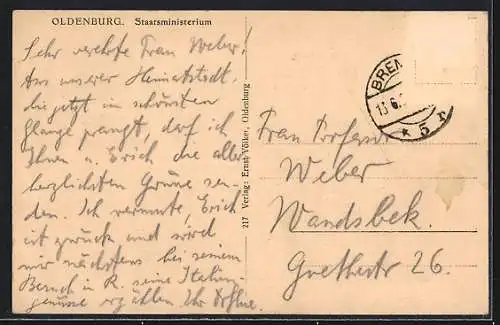 OLDENBURG. Staatsministerium
Sehr verehrte Frau Weber!
Aus unserer Heimatstadt,
die jetzt im schönsten
Glanze prangt, darf ich
Ihnen u. Erich die aller
herzlichsten Grüsse sen-
den. Ich vermute, Erich
ist zurück und wird
mir nächstens bei seinem
Besuch in R. seine Italien-
genüsse erzählen. Ihr
217 Verlag: Ernst Völker, Oldenburg
BREM
13.6.
* 5 r
Frau Professor
Weber
Wandsbek.
Goethestr 26.